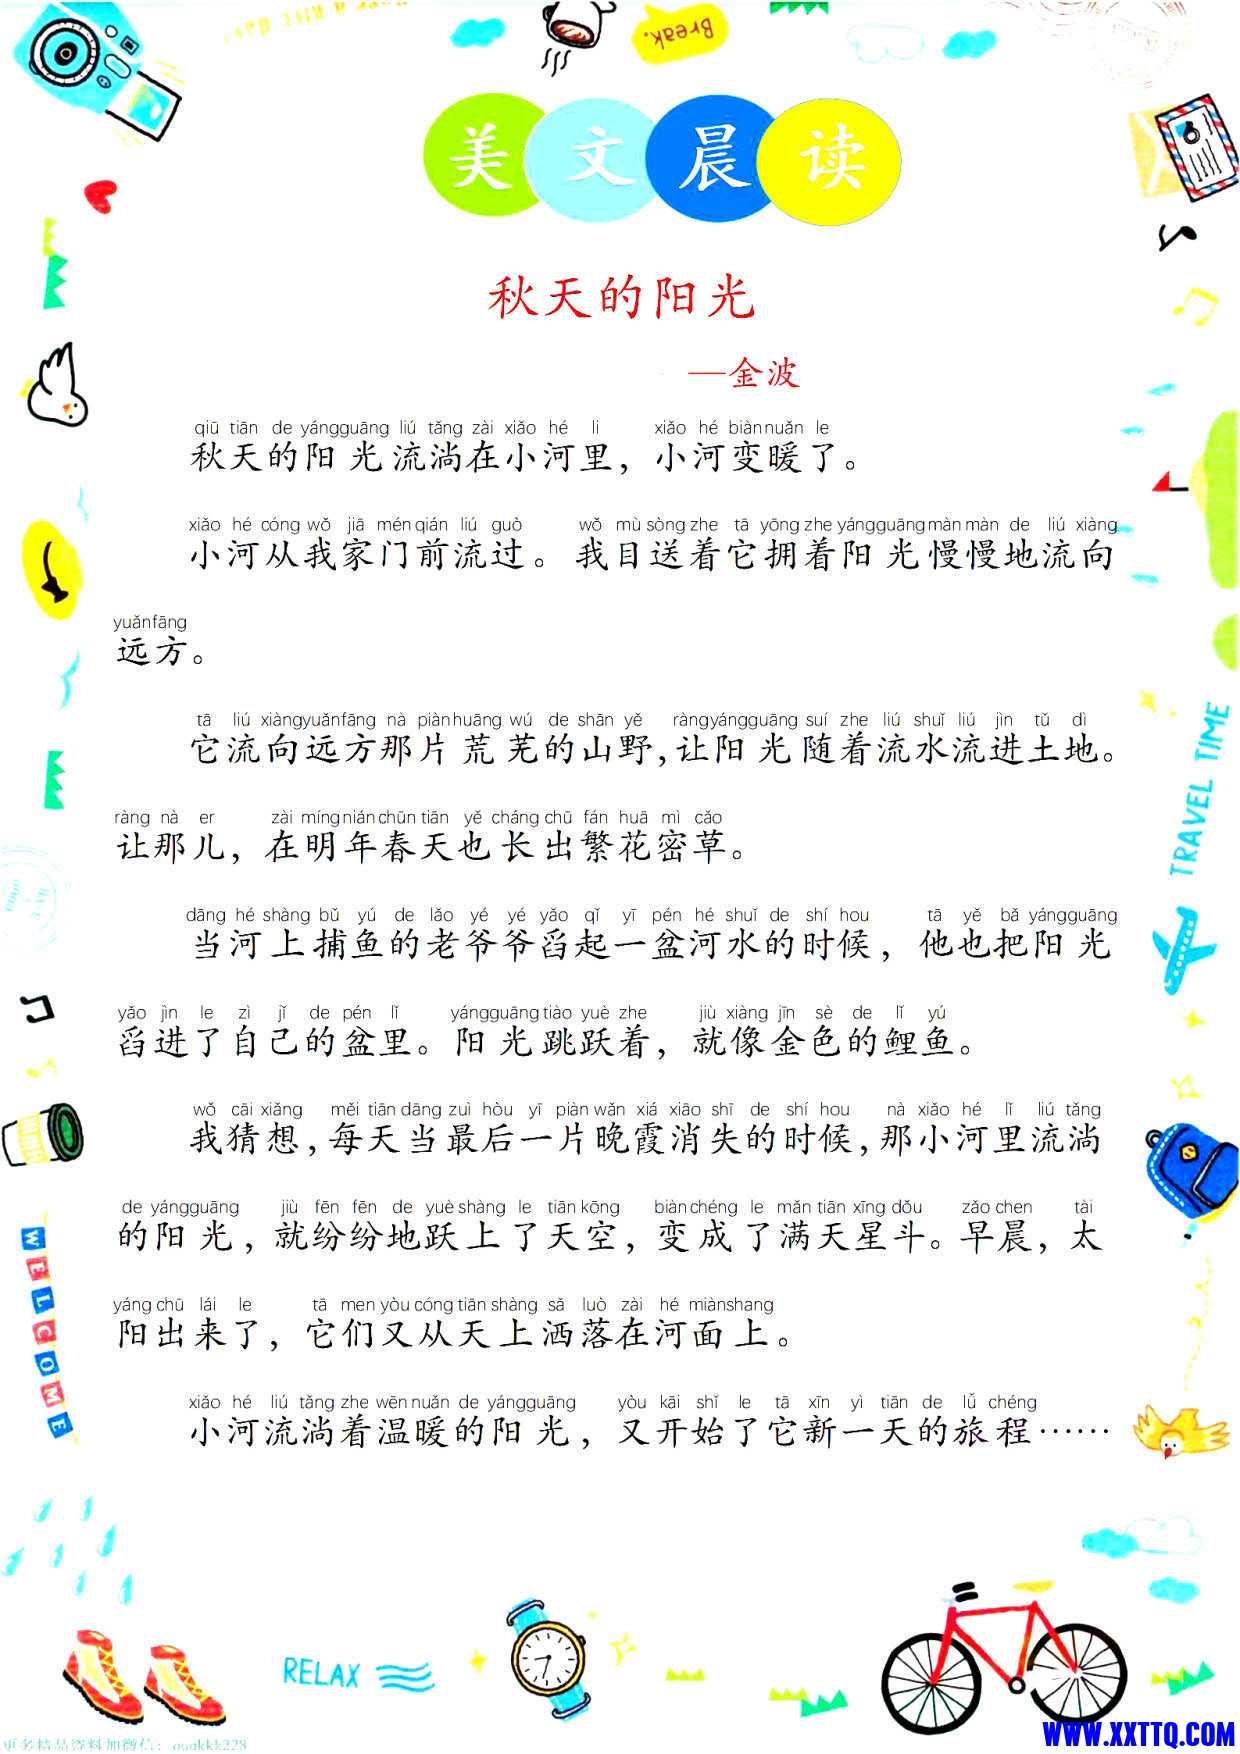 Break.
美文晨读
秋天的阳光
—金波
qiū tiān de yángguāng liú tǎng zài xiǎo hé li xiǎo hé biàn nuǎn le
秋天的阳光流淌在小河里，小河变暖了。
xiǎo hé cóng wǒ jiā mén qián liú guò wǒ mù sòng zhe tā yōng zhe yángguāng màn màn de liú xiàng
小河从我家门前流过。我目送着它拥着阳光慢慢地流向
yuǎnfāng
远方。
tā liú xiàngyuǎnfāng nà piàn huāng wú de shān yě ràngyángguāng suí zhe liú shuǐ liú jìn tǔ dì
它流向远方那片荒芜的山野，让阳光随着流水流进土地。
ràng nà er zài míng nián chūn tiān yě cháng chū fán huā mì cǎo
让那儿，在明年春天也长出繁花密草。
dāng hé shàng bǔ yú de lǎo yé yé yǎo qǐ yī pén hé shuǐ de shí hou tā yě bǎ yángguāng
当河上捕鱼的老爷爷舀起一盆河水的时候，他也把阳光
yǎo jìn le zì jǐ de pén lǐ yángguāng tiào yuè zhe jiù xiàng jīn sè de lǐ yú
舀进了自己的盆里。阳光跳跃着，就像金色的鲤鱼。
wǒ cāi xiǎng měi tiān dāng zuì hòu yī piàn wǎn xiá xiāo shī de shí hou nà xiǎo hé lǐ liú tǎng
我猜想，每天当最后一片晚霞消失的时候，那小河里流淌
de yángguāng jiù fēn fēn de yuè shàng le tiān kōng biàn chéng le mǎn tiān xīng dǒu zǎo chen tài
的阳光，就纷纷地跃上了天空，变成了满天星斗。早晨，太
yáng chū lái le tā men yòu cóng tiān shàng sǎ luò zài hé miànshang
阳出来了，它们又从天上洒落在河面上。
xiǎo hé liú tǎng zhe wēn nuǎn de yángguāng yòu kāi shǐ le tā xīn yì tiān de lǚ chéng
小河流淌着温暖的阳光，又开始了它新一天的旅程……
TRAVEL TIME
WELCOME
RELAX
更多精品资料加微信：
WWW.XXTTQ.COM